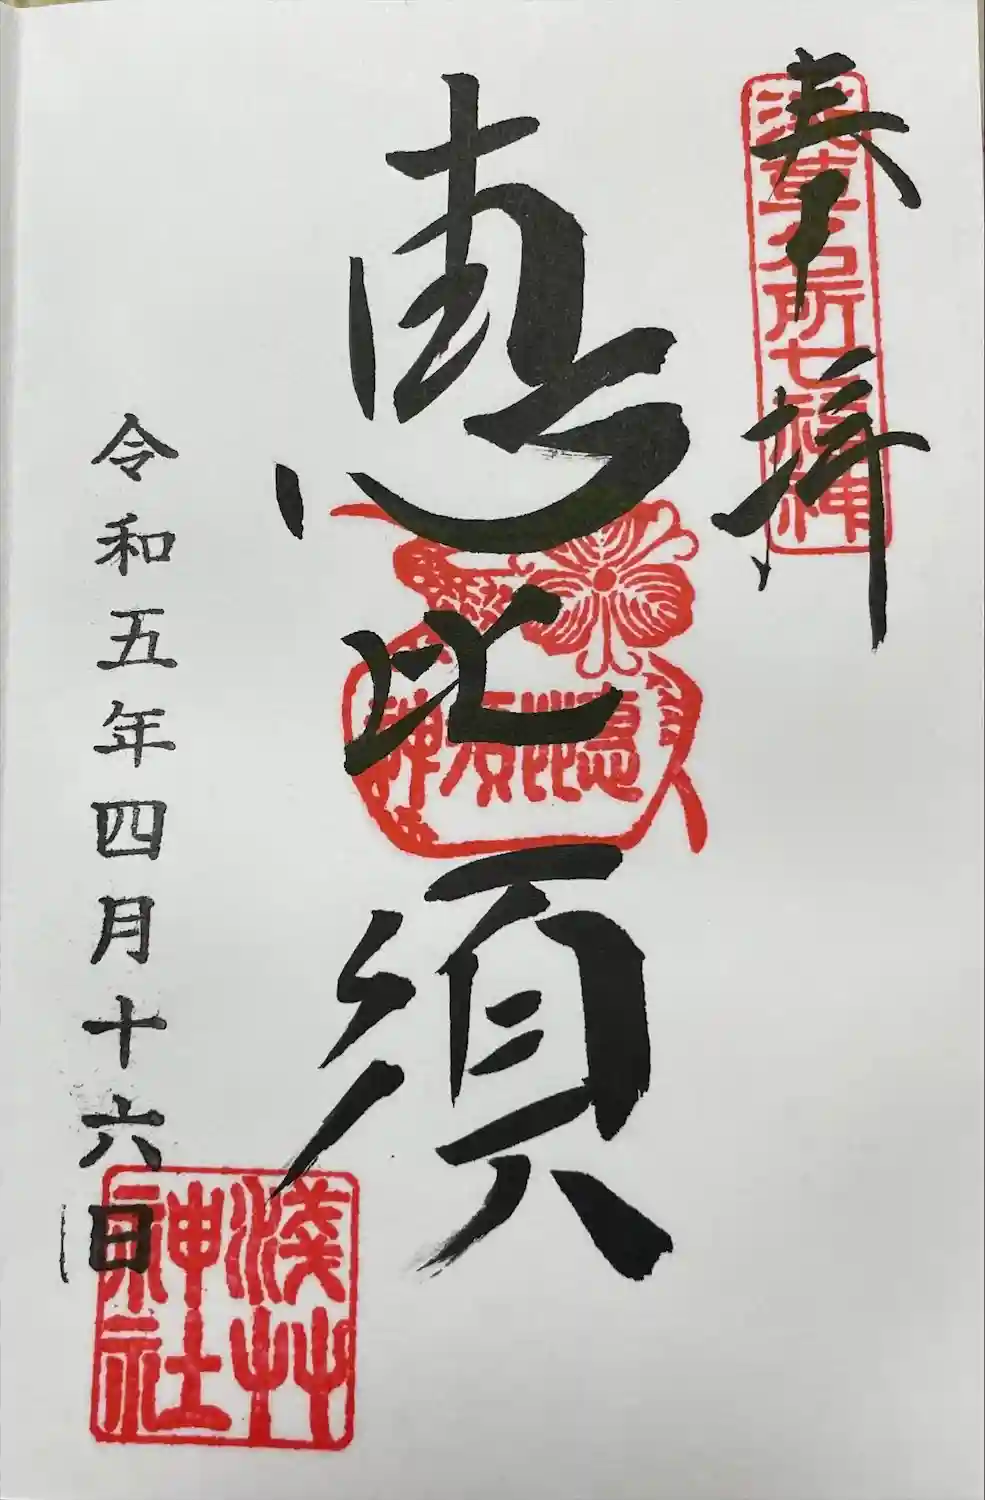 奉拝
浅草名所七福神
恵比須
恵比須神
令和五年四月十六日
淺艸神社